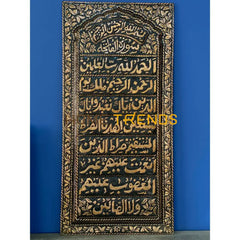 بسم الله الرحمن الرحيم
سورة الفاتحة
الحمد لله رب العلمين
الرحمن الرحيم ملك يوم
الدين اياك نعبد واياك
نستعين اهدنا الصراط
المستقيم صراط الذين
انعمت عليهم غير
المغضوب عليهم
ولا الضالين
TRENDS